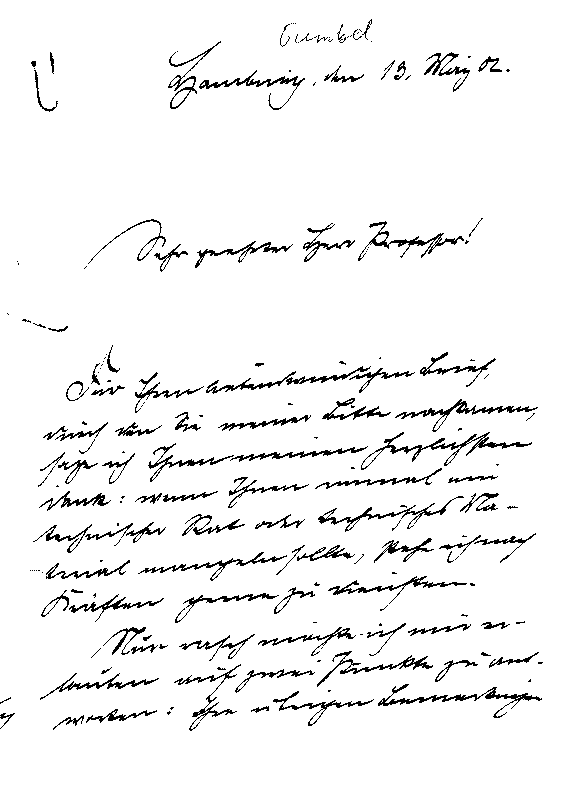 Gumbel
Hamburg, den 13. März 02.
Sehr geehrter Herr Professor!
Für Ihren liebenswürdigen Brief,
durch den Sie meiner Bitte nachkamen,
sage ich Ihnen meinen herzlichsten
Dank: wenn Ihnen einmal ein
technischer Rat oder technisches Ma-
terial mangeln sollte, stehe ich nach
Kräften gerne zu Diensten.
Nur rasch möchte ich mir er-
lauben auf zwei Punkte zu ant-
worten: Ihre übrigen Bemerkungen